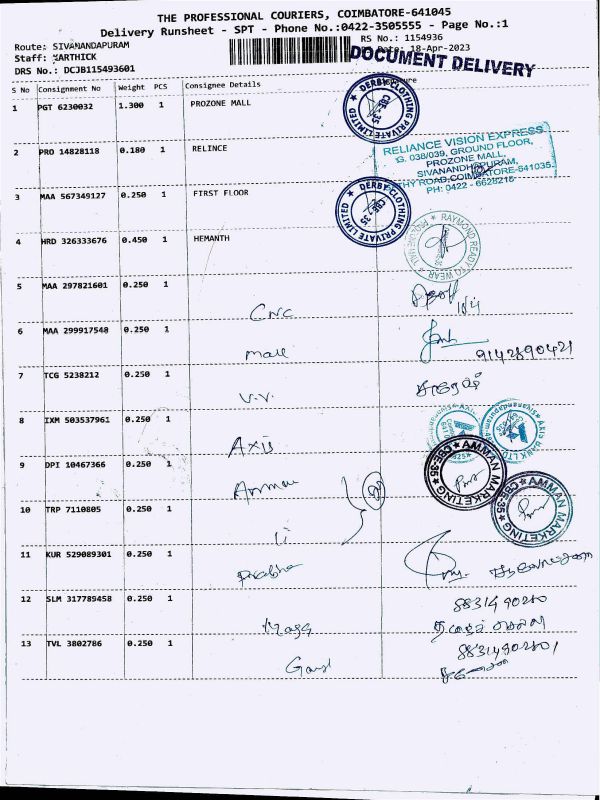 THE PROFESSIONAL COURIERS, COIMBATORE-641045
Delivery Runsheet - SPT - Phone No.:0422-3505555 - Page No.:1
Route: SIVANANDAPURAM
RS No.: 1154936
Staff: KARTHICK
18-Apr-2023
DOCUMENT DELIVERY
DRS No.: DCJB115493601
S No Consignment No Weight PCS Consignee Details
1 PGT 6230032 1.300 1 PROZONE MALL
DERBY CLOTHING PRIVATE LIMITED
CBE-35
2 PRO 14828118 0.180 1 RELINCE
RELIANCE VISION EXPRESS
G. 038/039, GROUND FLOOR,
PROZONE MALL,
SIVANANDHAPURAM,
THY ROAD, COIMBATORE-641035.
PH: 0422 - 6628216
3 MAA 567349127 0.250 1 FIRST FLOOR
DERBY CLOTHING PRIVATE LIMITED
CBE-35
4 HRD 326333676 0.450 1 HEMANTH
RAYMOND READY TO WEAR
5 MAA 297821601 0.250 1
CNC
6 MAA 299917548 0.250 1
Mall
9142890421
7 TCG 5238212 0.250 1
V.V.
8 IXM 503537961 0.250 1
AXIS
AXIS BANK LTD
9 DPI 10467366 0.250 1
Amman
AMMAN MARKETING
CBE-35
10 TRP 7110805 0.250 1
AMMAN MARKETING
CBE-35
11 KUR 529089301 0.250 1
Prabha
12 SLM 317789458 0.250 1
13 TVL 3802786 0.250 1